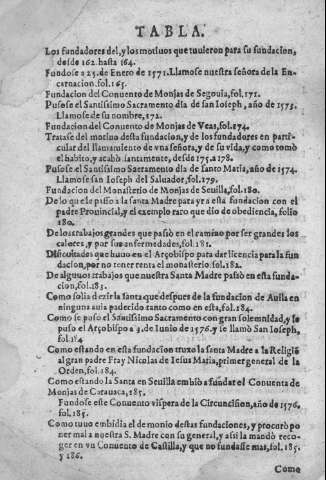 TABLA.
Los fundadores del, y los motiuos que tuuieron para su fundacion,
desde 162. hasta 164.
Fundose a 25. de Enero de 1571. Llamose nuestra señora de la En-
carnacion. fol. 165.
Fundacion del Conuento de Monjas de Segouia, fol. 171.
Pusose el Santissimo Sacramento dia de san Ioseph, año de 1573.
Llamose de su nombre, 172.
Fundacion del Conuento de Monjas de Veas, fol. 174.
Tratase del motiuo desta fundacion, y de los fundadores en parti-
cular del llamamiento de vna señora, y de su vida, y como tomò
el habito, y acabò santamente, desde 175. a 178.
Pusose el Santissimo Sacramento dia de santo Matia, año de 1574.
Llamose san Ioseph del Saluador, fol. 179.
Fundacion del Monasterio de Monjas de Seuilla, fol. 180.
De lo que le passò a la santa Madre para yr a esta fundacion con el
padre Prouincial, y el exemplo raro que dio de obediencia, folio
180.
De los trabajos grandes que passò en el camino por ser grandes los
calores, y por sus enfermedades, fol. 181.
Dificultades que huuo en el Arçobispo para dar licencia para la fun
dacion, por no tener renta el monasterio. fol. 182.
De algunos trabajos que nuestra Santa Madre passò en esta funda-
cion, fol. 183.
Como solia dezir la santa que despues de la fundacion de Auila en
ninguna auia padecido tanto como en esta, fol. 184.
Como se puso el Santissimo Sacramento con gran solemnidad, y le
puso el Arçobispo a 3. de Iunio de 1576. y se llamò San Ioseph,
fol. 184
Como estando en esta fundacion truxo la santa Madre a la Religiō
al gran padre Fray Nicolas de Iesus Maria, primer general de la
Orden, fol. 184.
Como estando la Santa en Seuilla embiò a fundar el Conuento de
Monjas de Carauaca, 185.
Fundose este Conuento vispera de la Circuncision, año de 1576.
fol. 185.
Como tuuo embidia el demonio destas fundaciones, y procurò po
ner mal a nuestra S. Madre con su general, y assi la mandò reco-
ger en vn Conuento de Castilla, y que no fundasse mas, fol. 185.
y 186.
Como